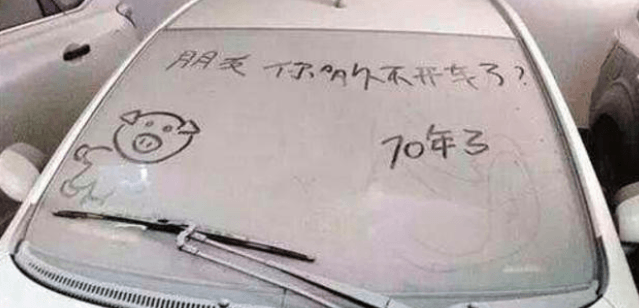 朋友 你多久不开车了?
10年了